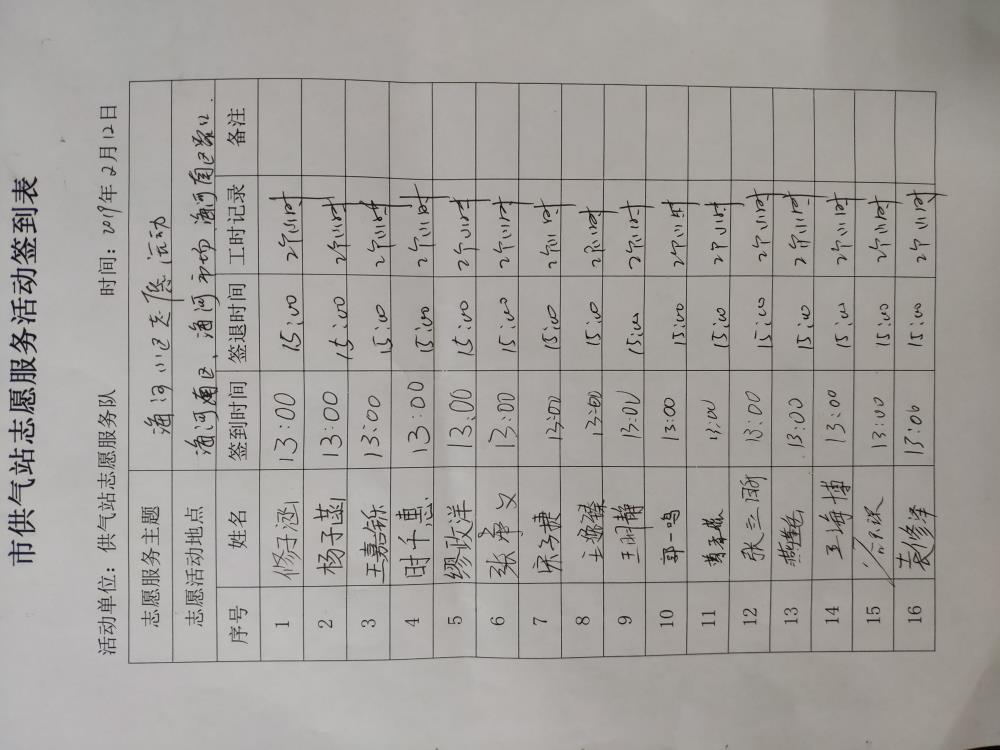 市供气站志愿服务活动签到表
活动单位：供气站志愿服务队 时间：2019年2月12日
志愿服务主题 海河小区志愿活动
志愿活动地点 海河南区、海河市场 海河南区路口
序号 姓名 签到时间 签退时间 工时记录 备注
1 修子涵 13:00 15:00 2个小时
2 杨子菡 13:00 15:00 2个小时
3 王嘉铄 13:00 15:00 2个小时
4 时千惠 13:00 15:00 2个小时
5 缪政洋 13:00 15:00 2个小时
6 张帝义 13:00 15:00 2个小时
7 宋子捷 13:00 15:00 2个小时
8 王 13:00 15:00 2个小时
9 王明静 13:00 15:00 2个小时
10 郭一鸣 13:00 15:00 2个小时
11 13:00 15:00 2个小时
12 张立国 13:00 15:00 2个小时
13 13:00 15:00 2个小时
14 王海博 13:00 15:00 2个小时
15 13:00 15:00 2个小时
16 袁修泽 13:00 15:00 2个小时